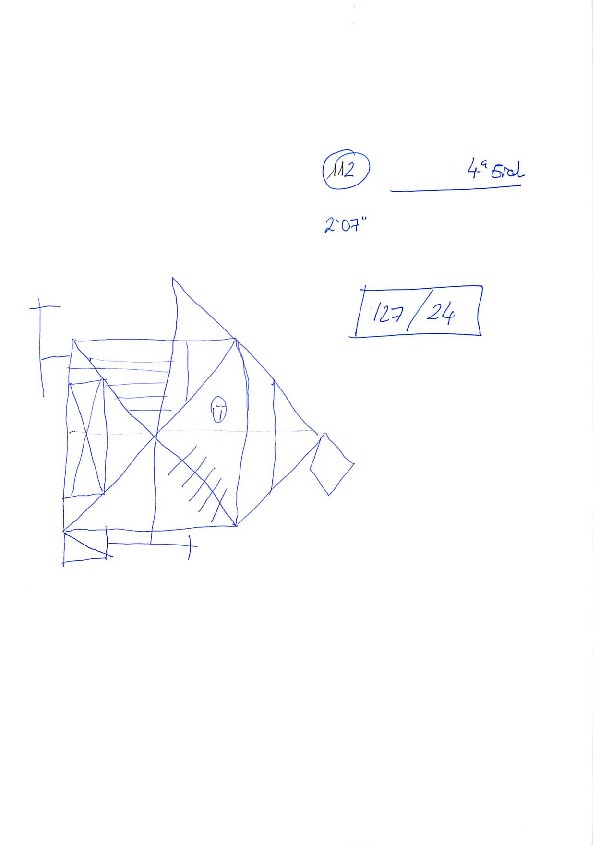 112
4ª
2'07"
127/24